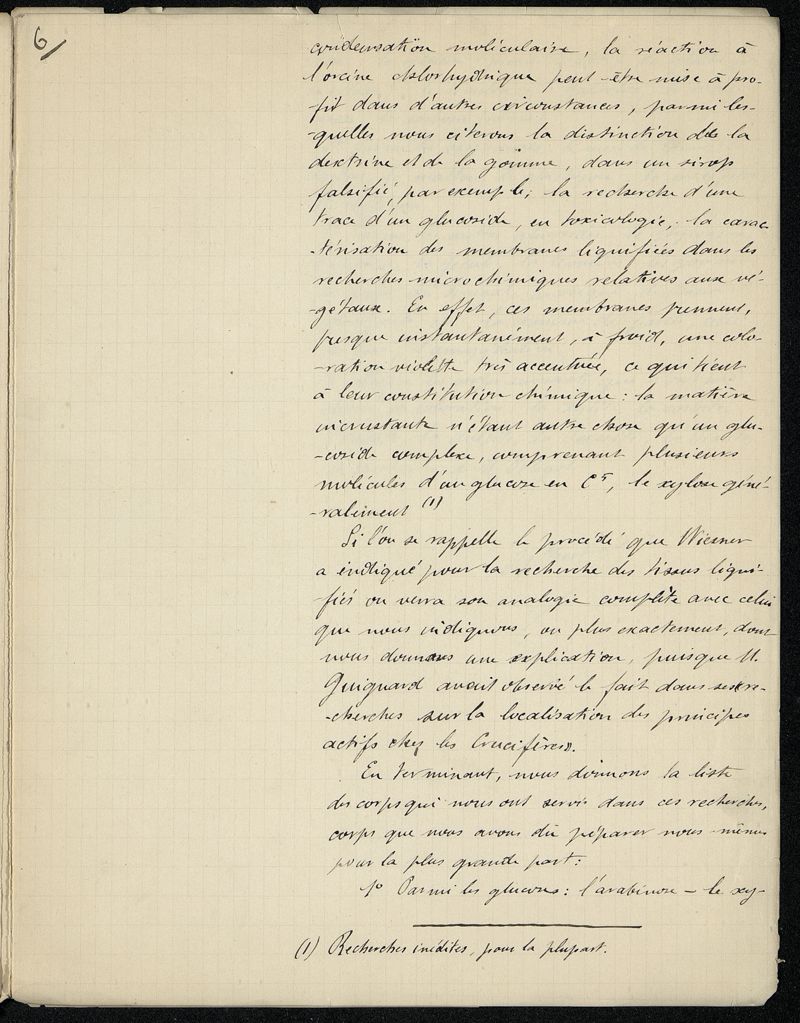 6/
condensation moléculaire, la réaction à
l'orcine chlorhydrique peut être mise à pro-
fit dans d'autres circonstances, parmi les-
-quelles nous citerons la distinction de la
dextrine et de la gomme, dans un sirop
falsifié, par exemple; la recherche d'une
trace d'un glucoside, en toxicologie; la carac-
-térisation des membranes lignifiées dans les
recherches microchimiques relatives aux vé-
-gétaux. En effet, ces membranes prennent,
presque instantanément, à froid, une colo-
-ration violette très accentuée, ce qui tient
à leur constitution chimique: la matière
incrustante n'étant autre chose qu'un glu-
-coside complexe, comprenant plusieurs
molécules d'un glucose en C⁵, le xylose géné-
-ralement (1)
Si l'on se rappelle le procédé que Wiesner
a indiqué pour la recherche des tissus ligni-
fiés on verra son analogie complète avec celui
que nous indiquons, ou plus exactement, dont
nous donnons une explication, puisque M.
Guignard avait observé le fait dans ses re-
-cherches sur la localisation des principes
actifs chez les Crucifères.
En terminant, nous donnons la liste
des corps qui nous ont servis dans ces recherches,
corps que nous avons dû préparer nous-mêmes
pour la plus grande part:
1º Parmi les glucoses: l'arabinose - le xy-
(1) Recherches inédites, pour la plupart.